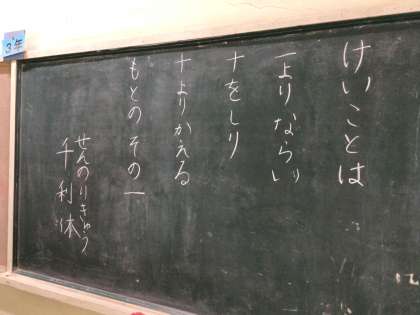 けいことは
一よりならい
十をしり
十よりかえる
もとのその一
せんのりきゅう
千利休
3年